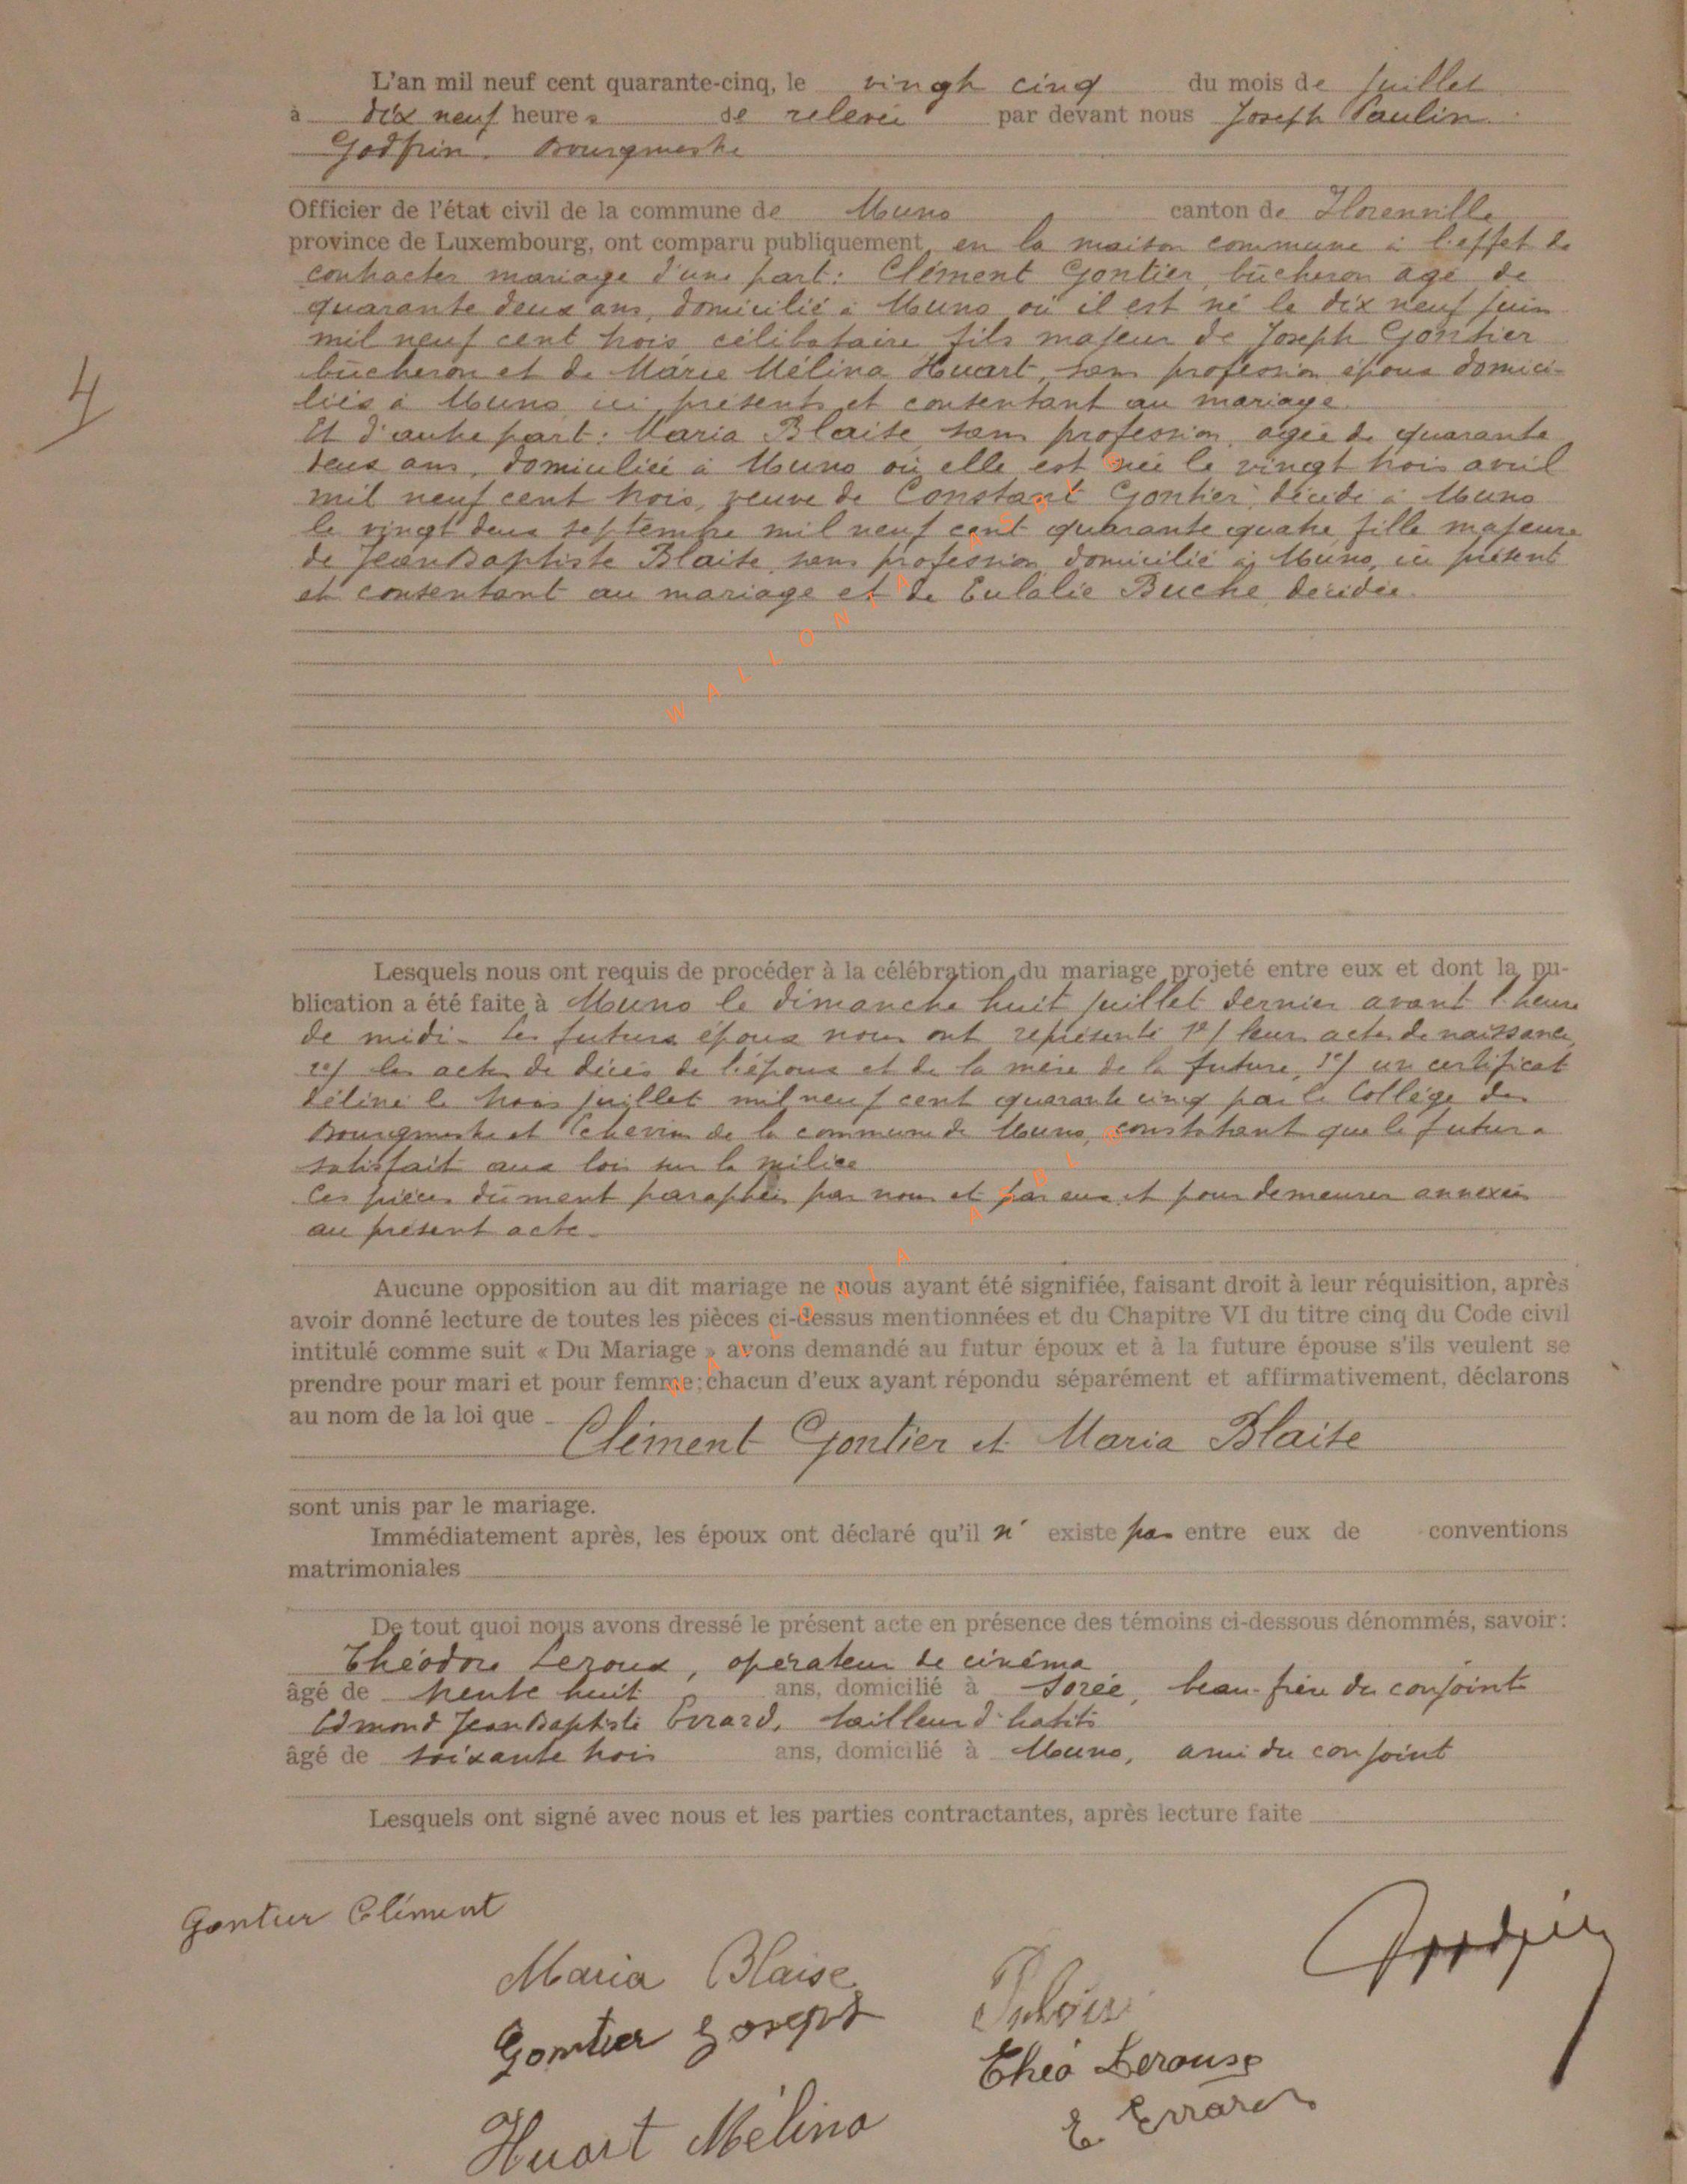 L'an mil neuf cent quarante-cinq, le vingt cinq du mois de juillet
à dix neuf heures de relevée par devant nous Joseph Paulin
Godfrin, Bourgmestre
Officier de l'état civil de la commune de Muno canton de Florenville
province de Luxembourg, ont comparu publiquement en la maison commune à l'effet de
contracter mariage d'une part : Clément Gontier, bûcheron âgé de
quarante deux ans, domicilié à Muno où il est né le dix neuf juin
mil neuf cent trois célibataire fils majeur de Joseph Gontier
bûcheron et de Marie Mélina Huart, sans profession époux domici-
liés à Muno ici présents et consentant au mariage.
Et d'autre part : Maria Blaise sans profession, âgée de quarante
deux ans, domiciliée à Muno où elle est née le vingt trois avril
mil neuf cent trois, veuve de Constant Gontier, décédé à Muno
le vingt deux septembre mil neuf cent quarante quatre, fille majeure
de Jean Baptiste Blaise, sans profession domicilié à Muno, ici présent
et consentant au mariage et de Eulalie Buche, décédée.
WALLONIA ASBL
4
Lesquels nous ont requis de procéder à la célébration du mariage projeté entre eux et dont la pu-
blication a été faite à Muno le dimanche huit juillet dernier avant l'heure
de midi. Les futurs époux nous ont représenté 1°/ leurs actes de naissance,
2°/ les actes de décès de l'époux et de la mère de la future, 3°/ un certificat
délivré le trois juillet mil neuf cent quarante cinq par le Collège des
Bourgmestre et Echevins de la commune de Muno, constatant que le futur a
satisfait aux lois sur la milice
Ces pièces dûment paraphées par nous et par eux et pour demeurer annexées
au présent acte.
Aucune opposition au dit mariage ne nous ayant été signifiée, faisant droit à leur réquisition, après
avoir donné lecture de toutes les pièces ci-dessus mentionnées et du Chapitre VI du titre cinq du Code civil
intitulé comme suit « Du Mariage » avons demandé au futur époux et à la future épouse s'ils veulent se
prendre pour mari et pour femme; chacun d'eux ayant répondu séparément et affirmativement, déclarons
au nom de la loi que
Clément Gontier et Maria Blaise
WALLONIA ASBL
sont unis par le mariage.
Immédiatement après, les époux ont déclaré qu'il n' existe pas entre eux de conventions
matrimoniales
De tout quoi nous avons dressé le présent acte en présence des témoins ci-dessous dénommés, savoir :
Théodore Leroux, opérateur de cinéma
âgé de trente huit ans, domicilié à Sorée, beau-frère du conjoint
Edmond Jean Baptiste Evrard, tailleur d'habits
âgé de soixante trois ans, domicilié à Muno, ami du conjoint
Lesquels ont signé avec nous et les parties contractantes, après lecture faite
Gontier Clément
Maria Blaise
Gontier Joseph
Théo Leroux
E. Evrard
Huart Mélina